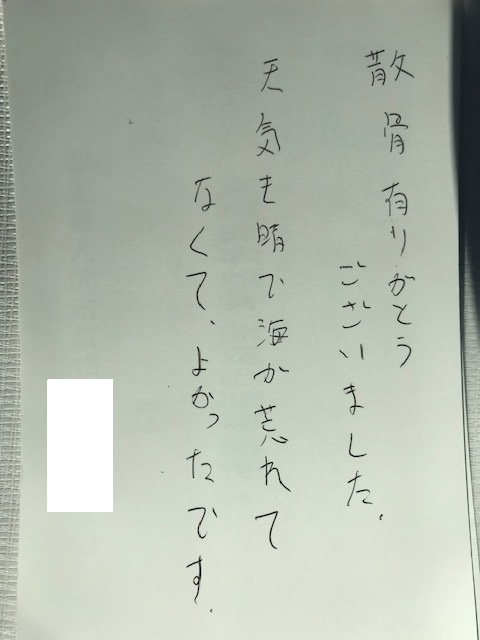 散骨有りがとう
ございました.
天気も晴で海が荒れて
なくて、よかったです.